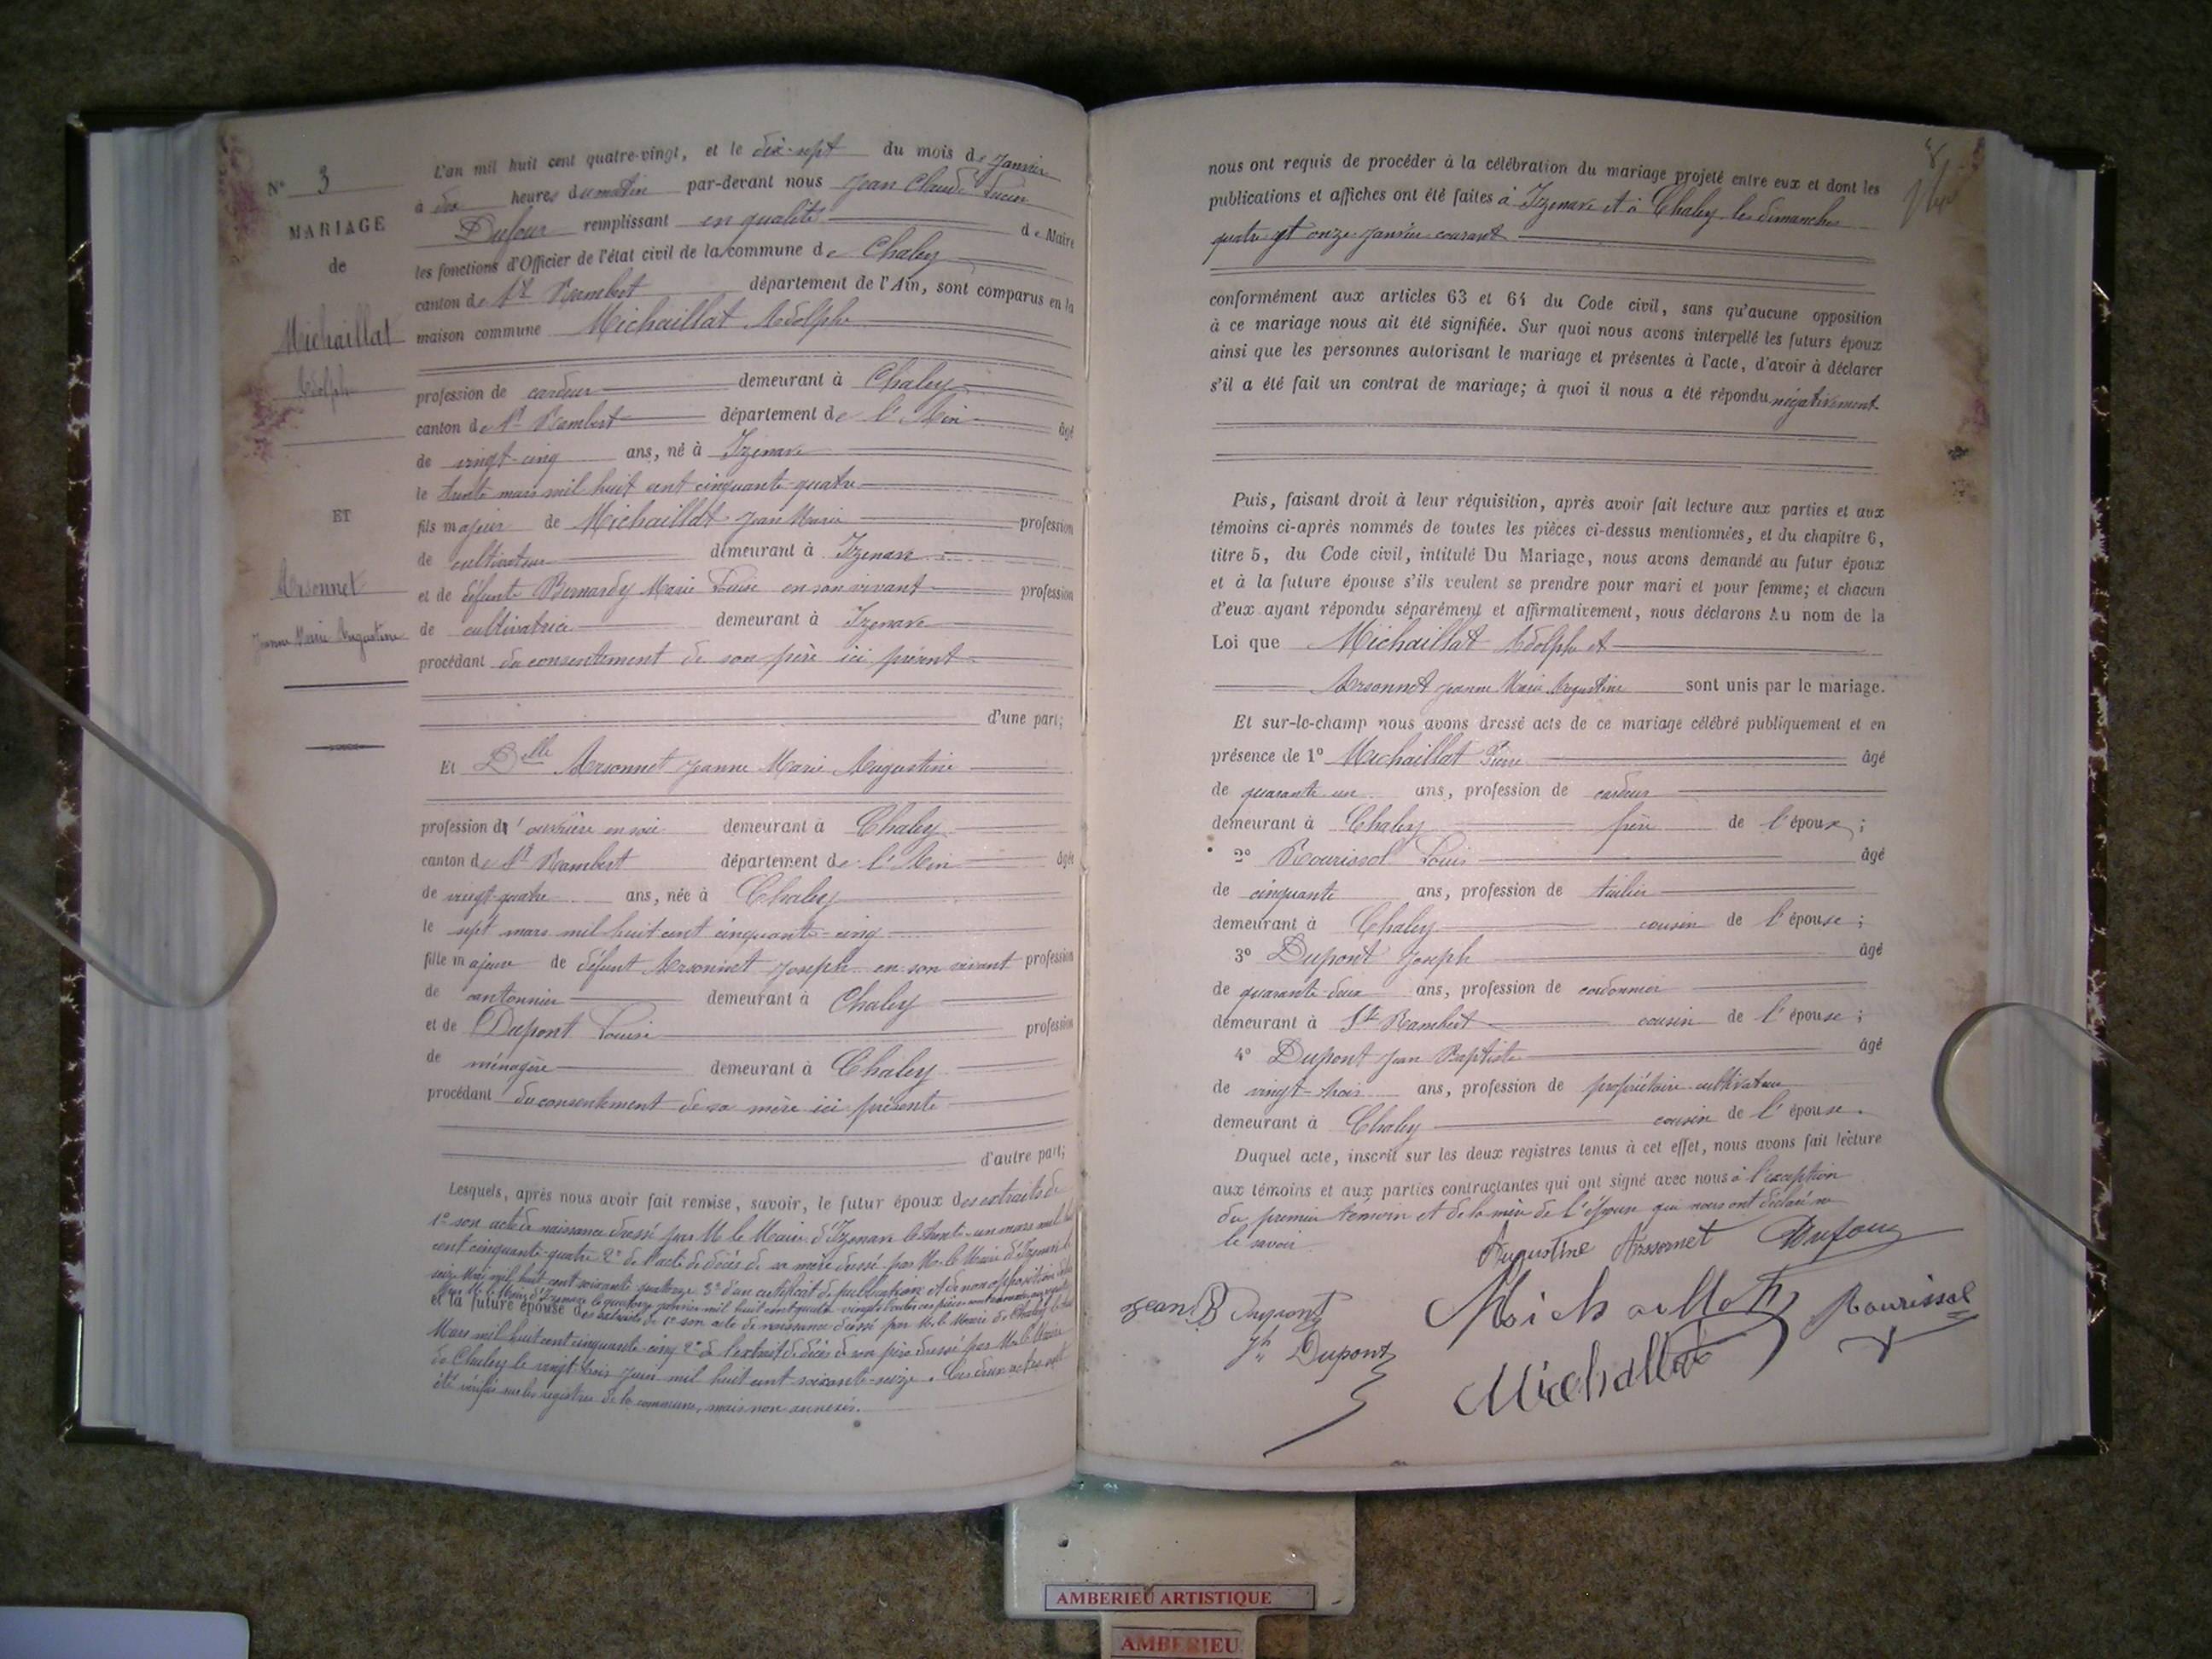 N° 3
MARIAGE
de
Michaillat
Adolphe
ET
Arsonnet
Jeanne Marie Augustine
L'an mil huit cent quatre-vingt, et le dix-sept du mois de Janvier
à dix heures du matin par-devant nous Jean Claude Lucien
Dufour remplissant en qualité de Maire
les fonctions d'Officier de l'état civil de la commune de Chaley
canton de St Rambert département de l'Ain, sont comparus en la
maison commune Michaillat Adolphe
profession de cardeur demeurant à Chaley
canton de St Rambert département de l'Ain âgé
de vingt-cinq ans, né à Izenave
le trente mars mil huit cent cinquante-quatre
fils majeur de Michaillat Jean Marie profession
de cultivateur demeurant à Izenave
et de défunte Bernardy Marie Louise en son vivant profession
de cultivatrice demeurant à Izenave
procédant du consentement de son père ici présent
d'une part;
Et Delle Arsonnet Jeanne Marie Augustine
profession d'ouvrière en soie demeurant à Chaley
canton de St Rambert département de l'Ain âgée
de vingt-quatre ans, née à Chaley
le sept mars mil huit cent cinquante-cinq
fille majeure de défunt Arsonnet Joseph en son vivant profession
de cantonnier demeurant à Chaley
et de Dupont Louise profession
de ménagère demeurant à Chaley
procédant du consentement de sa mère ici présente
d'autre part;
Lesquels, après nous avoir fait remise, savoir, le futur époux des extraits de
1° son acte de naissance dressé par M. le Maire d'Izenave le trente-un mars mil huit
cent cinquante-quatre 2° de l'acte de décès de sa mère dressé par M. le Maire d'Izenave le
seize Mai mil huit cent soixante quatorze 3° d'un certificat de publication et de non opposition
M. le Maire d'Izenave le quatorze janvier mil huit cent quatre-vingt
et la future épouse des extraits de 1° son acte de naissance dressé par M. le Maire de Chaley le
Mars mil huit cent cinquante-cinq 2° de l'extrait de décès de son père dressé par M. le Maire
de Chaley le vingt-trois Juin mil huit cent soixante-seize. Ces deux actes ont
été vérifiés sur les registres de la commune, mais non annexés.
8
nous ont requis de procéder à la célébration du mariage projeté entre eux et dont les
publications et affiches ont été faites à Izenave et à Chaley les dimanches
quatre et onze Janvier courant
conformément aux articles 63 et 64 du Code civil, sans qu'aucune opposition
à ce mariage nous ait été signifiée. Sur quoi nous avons interpellé les futurs époux
ainsi que les personnes autorisant le mariage et présentes à l'acte, d'avoir à déclarer
s'il a été fait un contrat de mariage; à quoi il nous a été répondu négativement
Puis, faisant droit à leur réquisition, après avoir fait lecture aux parties et aux
témoins ci-après nommés de toutes les pièces ci-dessus mentionnées, et du chapitre 6,
titre 5, du Code civil, intitulé Du Mariage, nous avons demandé au futur époux
et à la future épouse s'ils veulent se prendre pour mari et pour femme; et chacun
d'eux ayant répondu séparément et affirmativement, nous déclarons Au nom de la
Loi que Michaillat Adolphe et
Arsonnet Jeanne Marie Augustine sont unis par le mariage.
Et sur-le-champ nous avons dressé acts de ce mariage célébré publiquement et en
présence de 1° Michaillat Pierre âgé
de quarante-un ans, profession de cardeur
demeurant à Chaley frère de l'époux;
2° Rourissol Louis âgé
de cinquante ans, profession de tuilier
demeurant à Chaley cousin de l'épouse;
3° Dupont Joseph âgé
de quarante-deux ans, profession de cordonnier
demeurant à St Rambert cousin de l'épouse;
4° Dupont Jean Baptiste âgé
de vingt-trois ans, profession de propriétaire cultivateur
demeurant à Chaley cousin de l'épouse.
Duquel acte, inscrit sur les deux registres tenus à cet effet, nous avons fait lecture
aux témoins et aux parties contractantes qui ont signé avec nous à l'exception
du premier témoin et de la mère de l'épouse qui nous ont déclaré ne
le savoir
Augustine Arssornet Dufour
Jean B Dupont Michaillat Rourissol
Jh Dupont
Michallat
AMBERIEU ARTISTIQUE
AMBERIEU